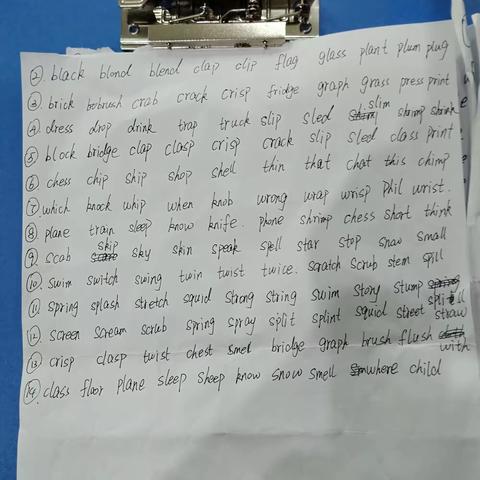 ② black blond blend clap clip flag glass plant plum plug
③ brick brush crab crack crisp fridge graph grass press print
④ dress drop drink trap truck slip sled slim shrimp shrink
⑤ block bridge clap clasp crisp crack slip sled class print
⑥ chess chip ship shop shell thin that chat this chimp
⑦ which knock whip when knob wrong wrap wrisp Phil wrist.
⑧ plane train sleep know knife. phone shrimp chess short think
⑨ scab skip sky skin speak spell star stop snow small
⑩ swim switch swing twin twist twice. scratch scrub stem spill
⑪ spring splash stretch squid strong string swim story stump
⑫ screen scream scrub spring spray split splint squid street straw
⑬ crisp clasp twist chest smel bridge graph brush flush with
⑭ class floor plane sleep sheep know snow smell where child